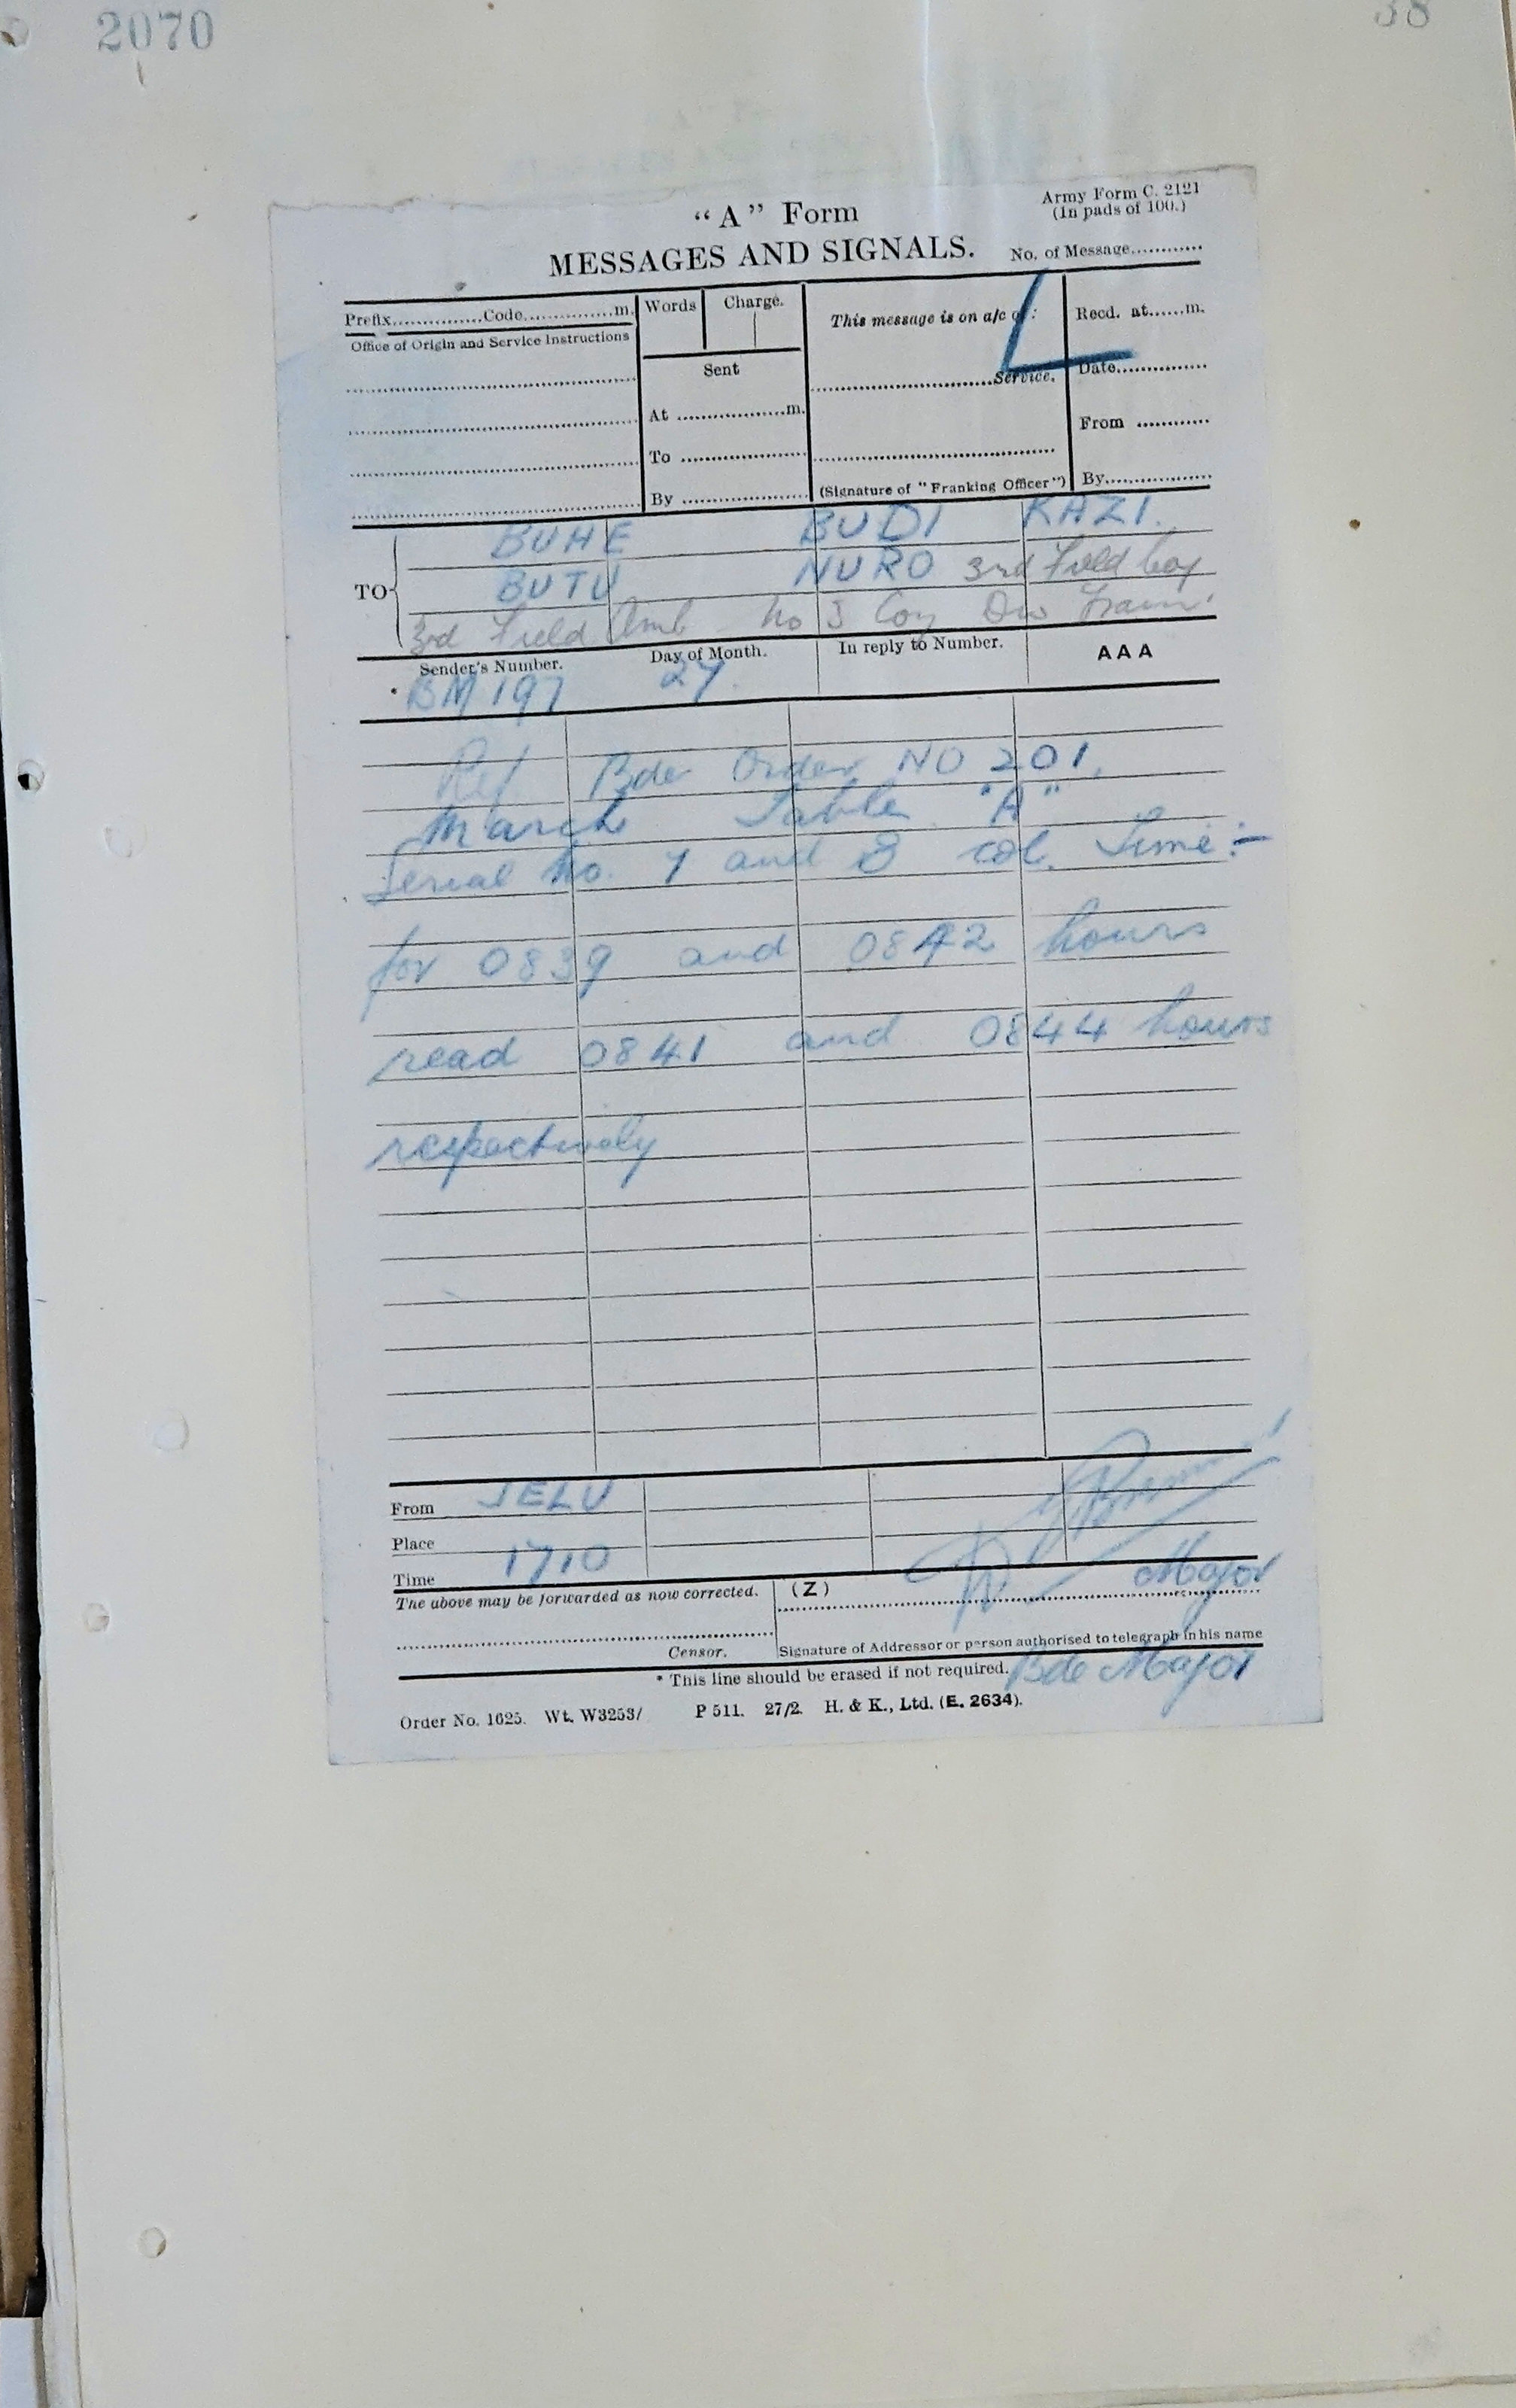 2070 38
"A" Form
Army Form C. 2121
(In pads of 100.)
MESSAGES AND SIGNALS. No. of Message............
Prefix...............Code...............m. Words Charge. This message is on a/c of: Recd. at......m.
Office of Origin and Service Instructions
Sent Service. Date...............
At ..................m. From ............
To .....................
By ..................... (Signature of "Franking Officer") By..................
BUHE BUDI KAZI.
TO BUTU NURO 3rd Field Coy
3rd Field Amb No 3 Coy Div Train.
Sender's Number. Day of Month. In reply to Number. AAA
* BM 197 27.
Ref. Bde Order NO 201.
March Table "A"
Serial No. 7 and 8 col. Time:-
for 0839 and 0842 hours
read 0841 and 0844 hours
respectively
From JELU
Place
Time 1710
The above may be forwarded as now corrected. (Z) Major
Censor. Signature of Addressor or person authorised to telegraph in his name
* This line should be erased if not required. Bde Major
Order No. 1625. Wt. W3253/ P 511. 27/2. H. & K., Ltd. (E. 2634).